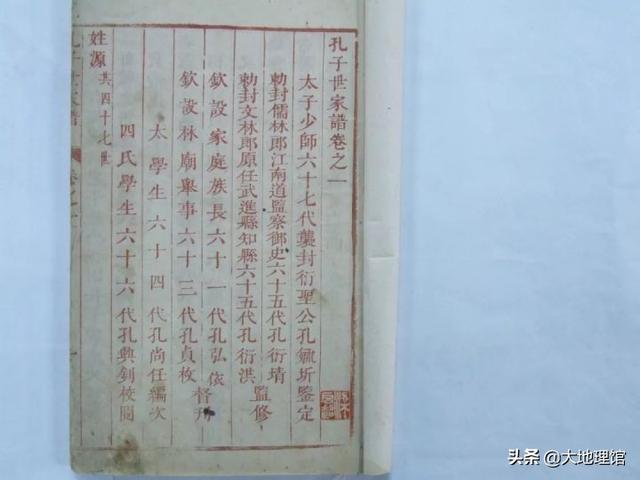 孔子世家譜卷之一
太子少師六十七代襲封衍聖公孔毓圻鑒定
勅封儒林郎江南道監察御史六十五代孔衍堉
勅封文林郎原任武進縣知縣六十五代孔衍洪
監修
欽設家庭族長六十一代孔弘依
欽設林廟舉事六十三代孔貞枚
督刋
太學生六十四代孔尚任編次
四氏學生六十六代孔興釗校閱
姓源共四十七世
孔子世家譜 卷之一
头条 @大地理馆